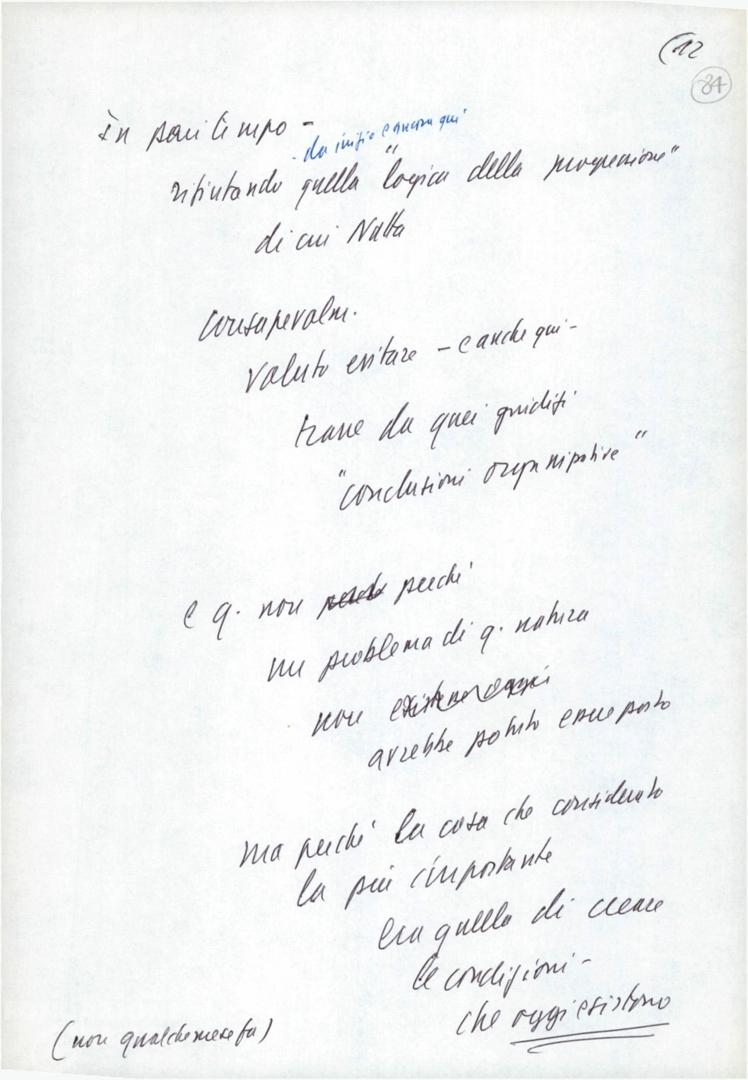 (12
84
in pari tempo -
- da inizio e ancora qui
rifiutando quella "logica della progressione"
di cui Natta
consapevolm.
voluto evitare - e anche qui -
trarre da quei giudizi
"conclusioni organizzative"
e q. non perché
un problema di q. natura
non
avrebbe potuto essere posto
ma perché la cosa che considerato
la più importante
era quella di creare
le condizioni -
che oggi esistono
(non qualche mese fa)